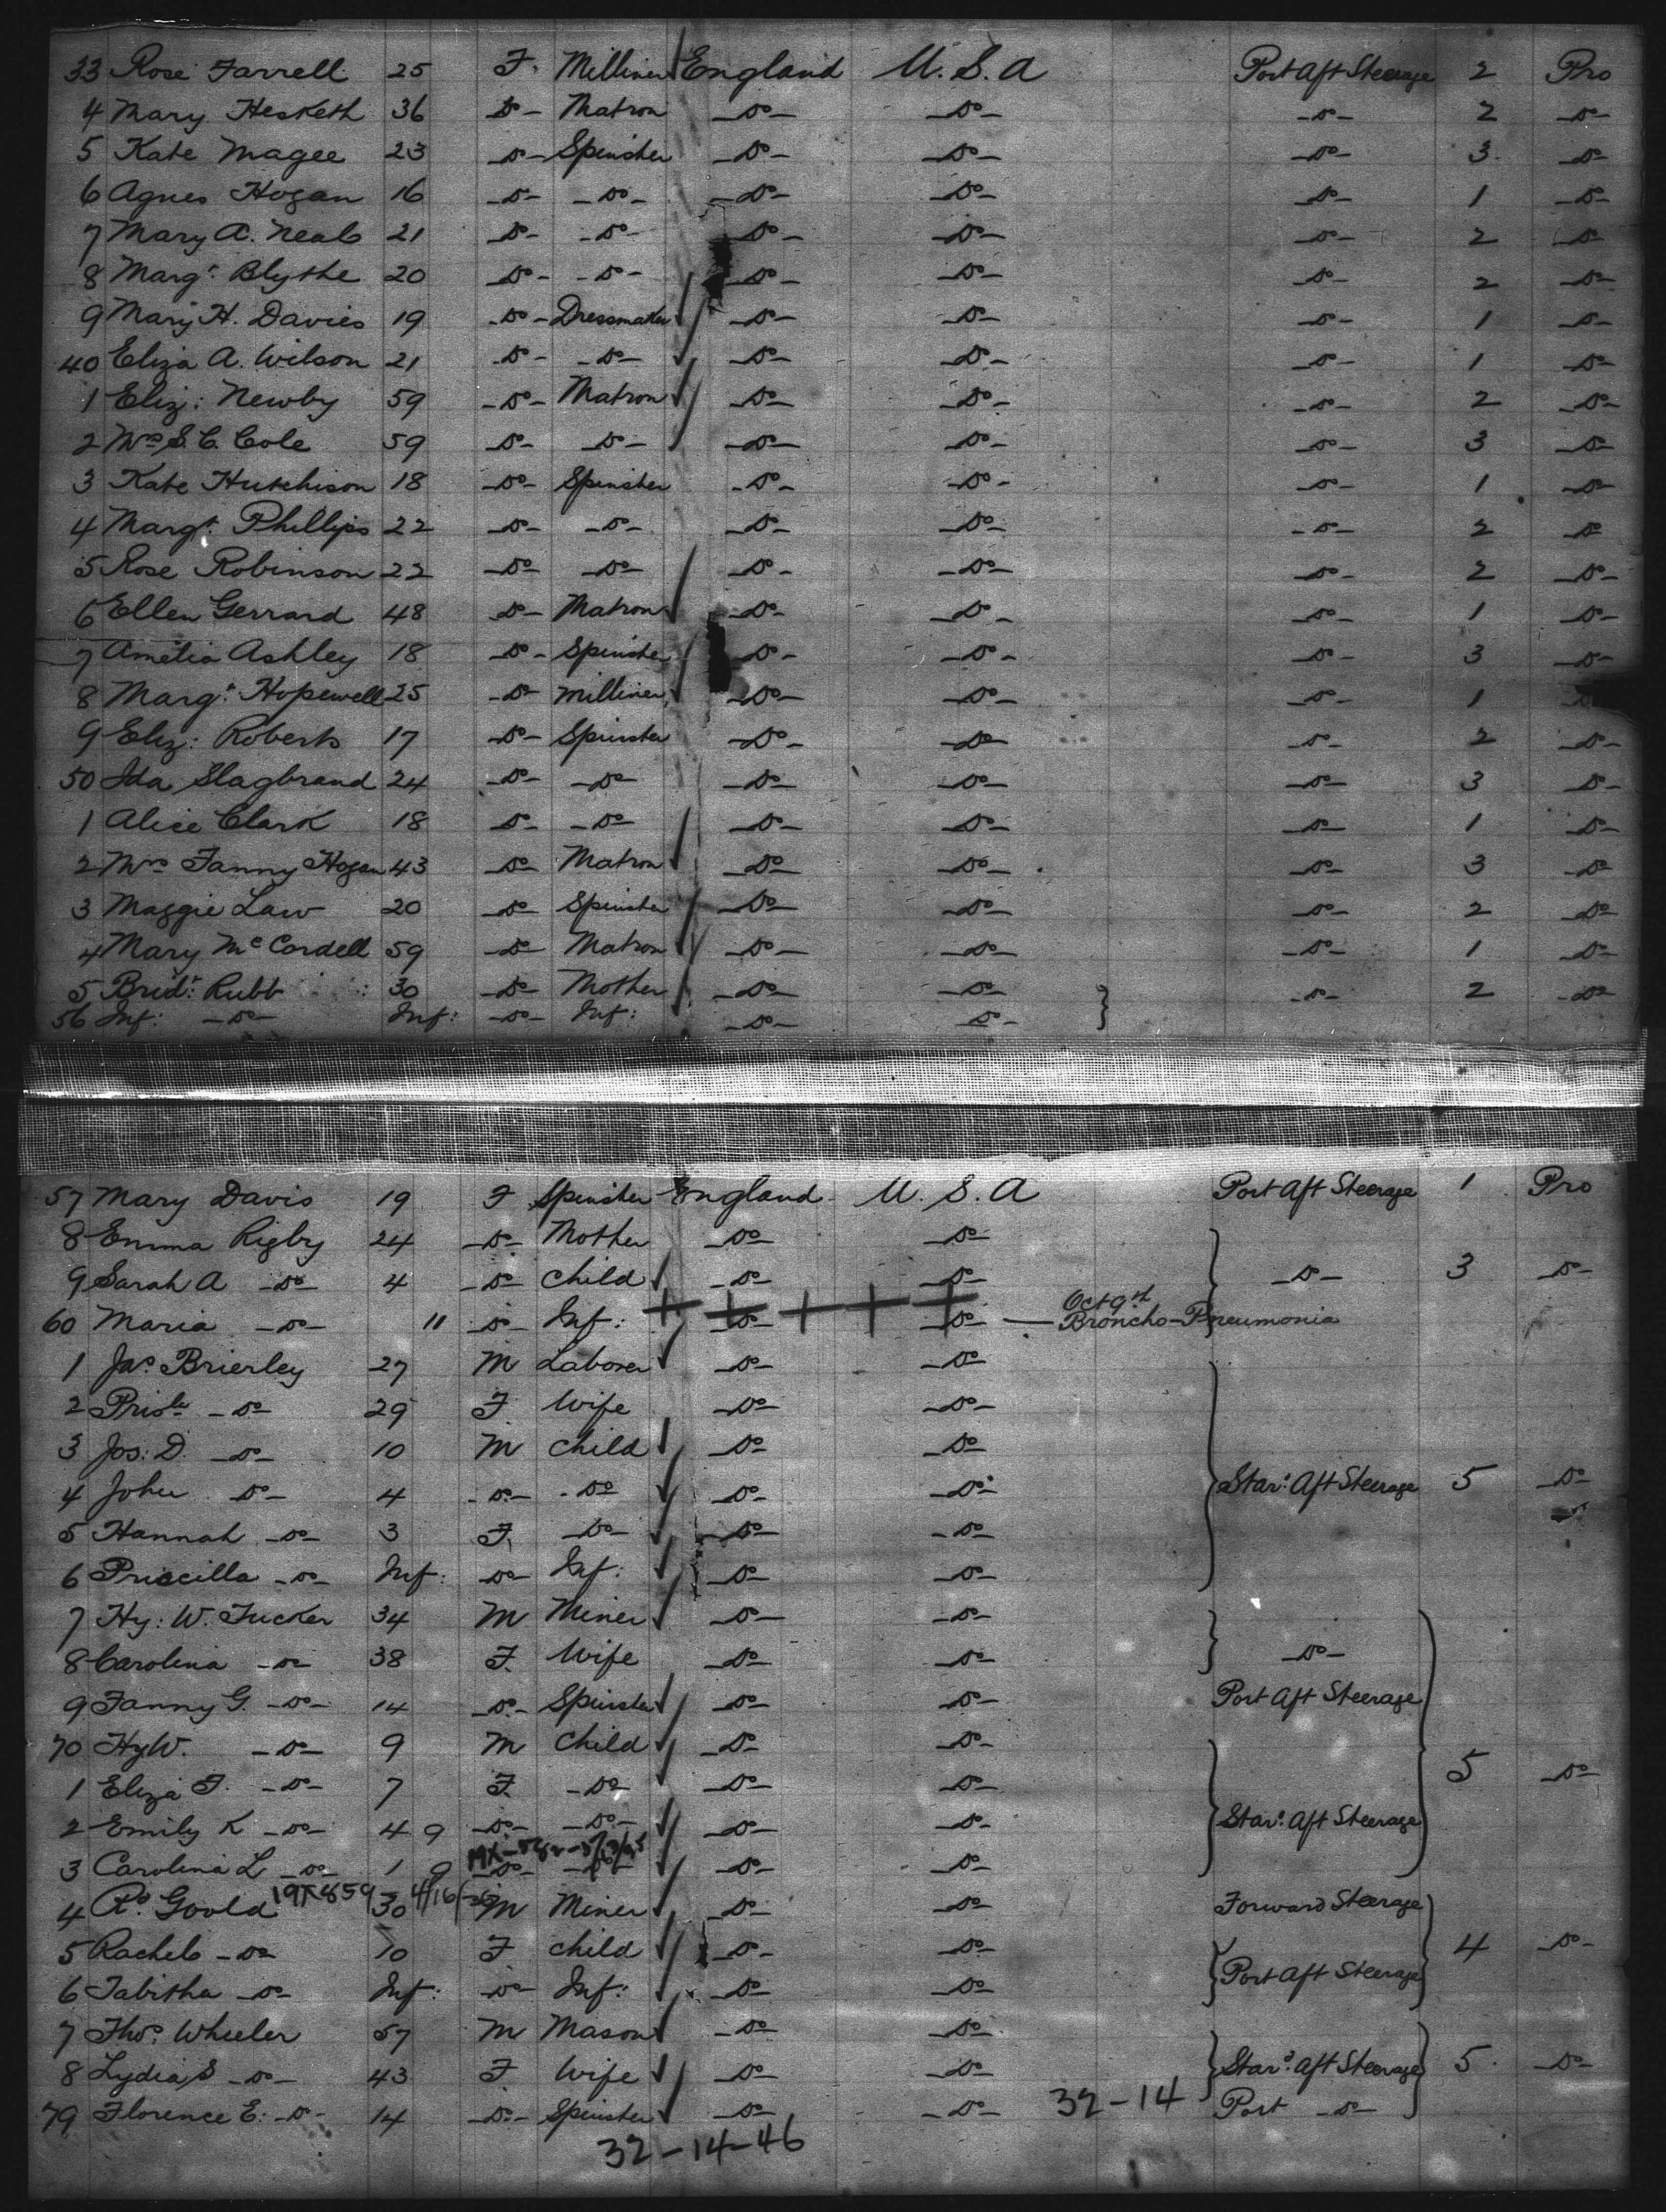 33 Rose Farrell 25 F. Milliner England U.S.A Port Aft Steerage 2 Pro
4 Mary Hesketh 36 -Do- Matron -Do- -Do- -Do- 2 -Do-
5 Kate Magee 23 -Do- Spinster -Do- -Do- -Do- 3. -Do-
6 Agnes Hogan 16 -Do- -Do- -Do- -Do- -Do- 1 -Do-
7 Mary A. Neal 21 -Do- -Do- -Do- -Do- -Do- 2 -Do-
8 Margt. Blythe 20 -Do- -Do- -Do- -Do- -Do- 2 -Do-
9 Mary H. Davies 19 -Do- Dressmaker -Do- -Do- -Do- 1 -Do-
40 Eliza A. Wilson 21 -Do- -Do- -Do- -Do- -Do- 1 -Do-
1 Eliz: Newby 59 -Do- Matron -Do- -Do- -Do- 2 -Do-
2 Mrs S. C. Cole 59 -Do- -Do- -Do- -Do- -Do- 3 -Do-
3 Kate Hutchison 18 -Do- Spinster -Do- -Do- -Do- 1 -Do-
4 Margt. Phillips 22 -Do- -Do- -Do- -Do- -Do- 2 -Do-
5 Rose Robinson 22 -Do- -Do- -Do- -Do- -Do- 2 -Do-
6 Ellen Gerrard 48 -Do- Matron -Do- -Do- -Do- 1 -Do-
7 Amelia Ashley 18 -Do- Spinster -Do- -Do- -Do- 3 -Do-
8 Margt. Hopewell 25 -Do- Milliner -Do- -Do- -Do- 1
9 Eliz: Roberts 17 -Do- Spinster -Do- -Do- -Do- 2 -Do-
50 Ida Slagbrand 24 -Do- -Do- -Do- -Do- -Do- 3 -Do-
1 Alice Clark 18 -Do- -Do- -Do- -Do- -Do- 1 -Do-
2 Mrs Fanny Hogan 43 -Do- Matron -Do- -Do- -Do- 3 -Do-
3 Maggie Law 20 -Do- Spinster -Do- -Do- -Do- 2 -Do-
4 Mary McCordell 59 -Do- Matron -Do- -Do- -Do- 1 -Do-
5 Bridt. Rubb 30 -Do- Mother -Do- -Do- -Do- 2 -Do-
56 Inf: -Do- Inf: -Do- Inf: -Do- -Do-
57 Mary Davis 19 F Spinster England U.S.A Port Aft Steerage 1 Pro
8 Emma Rigby 24 -Do- Mother -Do- -Do-
9 Sarah A -Do- 4 -Do- Child -Do- -Do- -Do- 3 -Do-
60 Maria -Do- 11 -Do- Inf: -Do- -Do- — Oct 9th Broncho-Pneumonia
1 Jas. Brierley 27 M Laborer -Do- -Do-
2 Prisla -Do- 29 F Wife -Do- -Do-
3 Jos: D. -Do- 10 M Child -Do- -Do-
4 John -Do- 4 -Do- -Do- -Do- -Do- Star: Aft Steerage 5 -Do-
5 Hannah -Do- 3 F. -Do- -Do- -Do-
6 Priscilla -Do- Inf: -Do- Inf: -Do- -Do-
7 Hy: W. Tucker 34 M Miner -Do- -Do-
8 Carolina -Do- 38 F. Wife -Do- -Do- -Do-
9 Fanny G. -Do- 14 -Do- Spinster -Do- -Do- Port Aft Steerage
70 Hy W. -Do- 9 M Child -Do- -Do-
1 Eliza F. -Do- 7 F. -Do- -Do- -Do- 5 -Do-
2 Emily K -Do- 4 9 -Do- -Do- -Do- -Do- Star: Aft Steerage
3 Carolina L -Do- 1 9 -Do- -Do- -Do- -Do-
4 Rd. Goold 30 M Miner -Do- -Do- Forward Steerage
5 Rachel -Do- 10 F Child -Do- -Do- 4 -Do-
6 Tabitha -Do- Inf: -Do- Inf: -Do- -Do- Port Aft Steerage
7 Thos. Wheeler 57 M Mason -Do- -Do-
8 Lydia S -Do- 43 F Wife -Do- -Do- Star: Aft Steerage 5. -Do-
79 Florence E: -Do- 14 -Do- Spinster -Do- -Do- 32-14 Port -Do-
32-14-46